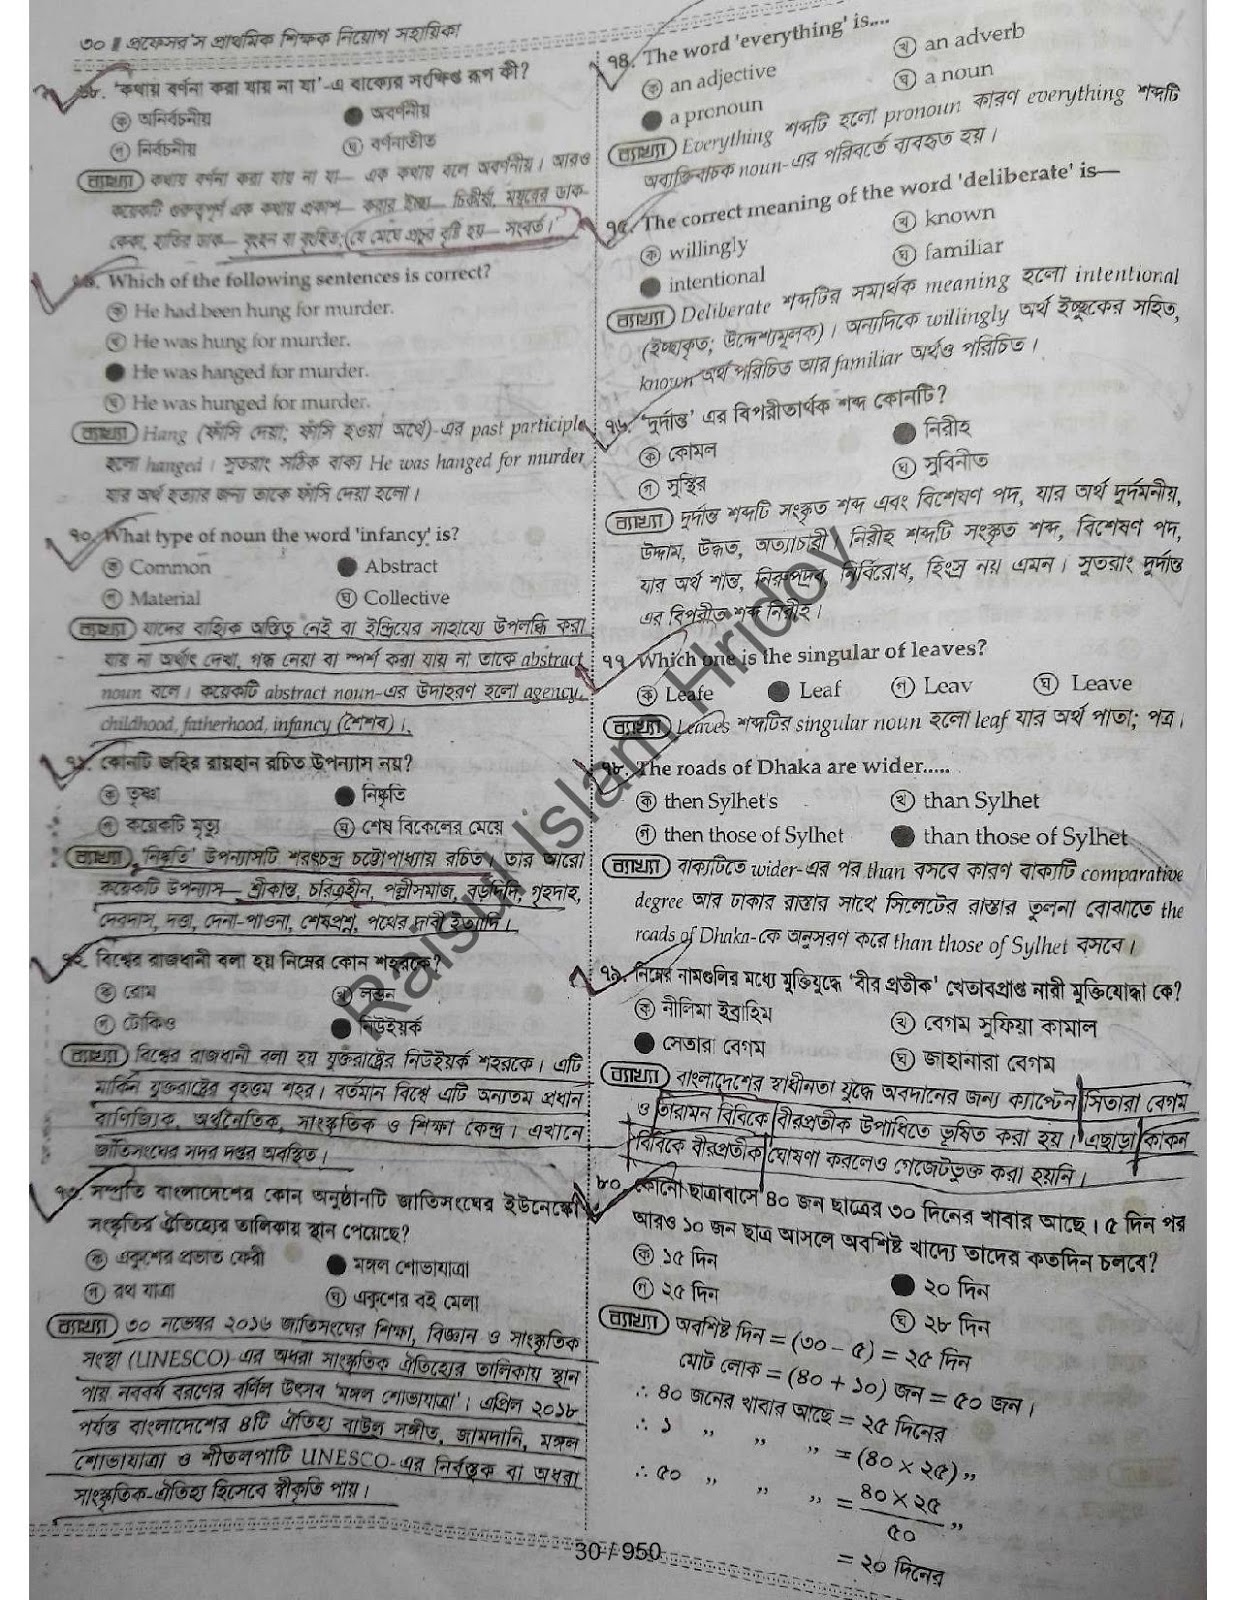 ৩০ ॥ প্রফেসর'স প্রাথমিক শিক্ষক নিয়োগ সহায়িকা
৬৮. 'কথায় বর্ণনা করা যায় না যা'-এ বাক্যের সংক্ষিপ্ত রূপ কী?
ক অনির্বচনীয় অবর্ণনীয়
গ নির্বচনীয় ঘ বর্ণনাতীত
ব্যাখ্যা কথায় বর্ণনা করা যায় না যা— এক কথায় বলে অবর্ণনীয়। আরও
কয়েকটি গুরুত্বপূর্ণ এক কথায় প্রকাশ— করার ইচ্ছা— চিকীর্ষা, ময়ূরের ডাক—
কেকা, হাতির ডাক— বৃংহন বা বৃংহিত; যে মেঘে প্রচুর বৃষ্টি হয়— সংবর্ত।
৬৯. Which of the following sentences is correct?
ক He had been hung for murder.
খ He was hung for murder.
He was hanged for murder.
ঘ He was hunged for murder.
ব্যাখ্যা Hang (ফাঁসি দেয়া; ফাঁসি হওয়া অর্থে)-এর past participle
হলো hanged। সুতরাং সঠিক বাক্য He was hanged for murder
যার অর্থ হত্যার জন্য তাকে ফাঁসি দেয়া হলো।
৭০. What type of noun the word 'infancy' is?
ক Common Abstract
গ Material ঘ Collective
ব্যাখ্যা যাদের বাহ্যিক অস্তিত্ব নেই বা ইন্দ্রিয়ের সাহায্যে উপলব্ধি করা
যায় না অর্থাৎ দেখা, গন্ধ নেয়া বা স্পর্শ করা যায় না তাকে abstract
noun বলে। কয়েকটি abstract noun-এর উদাহরণ হলো agency,
childhood, fatherhood, infancy (শৈশব)।
৭১. কোনটি জহির রায়হান রচিত উপন্যাস নয়?
ক তৃষ্ণা নিষ্কৃতি
গ কয়েকটি মৃত্যু ঘ শেষ বিকেলের মেয়ে
ব্যাখ্যা 'নিষ্কৃতি' উপন্যাসটি শরৎচন্দ্র চট্টোপাধ্যায় রচিত। তার আরো
কয়েকটি উপন্যাস— শ্রীকান্ত, চরিত্রহীন, পল্লীসমাজ, বড়দিদি, গৃহদাহ,
দেবদাস, দত্তা, দেনা-পাওনা, শেষপ্রশ্ন, পথের দাবী ইত্যাদি।
৭২. বিশ্বের রাজধানী বলা হয় নিম্নের কোন শহরকে?
ক রোম খ লন্ডন
গ টোকিও নিউইয়র্ক
ব্যাখ্যা বিশ্বের রাজধানী বলা হয় যুক্তরাষ্ট্রের নিউইয়র্ক শহরকে। এটি
মার্কিন যুক্তরাষ্ট্রের বৃহত্তম শহর। বর্তমান বিশ্বে এটি অন্যতম প্রধান
বাণিজ্যিক, অর্থনৈতিক, সাংস্কৃতিক ও শিক্ষা কেন্দ্র। এখানে
জাতিসংঘের সদর দপ্তর অবস্থিত।
৭৩. সম্প্রতি বাংলাদেশের কোন অনুষ্ঠানটি জাতিসংঘের ইউনেস্কো
সংস্কৃতির ঐতিহ্যের তালিকায় স্থান পেয়েছে?
ক একুশের প্রভাত ফেরী মঙ্গল শোভাযাত্রা
গ রথ যাত্রা ঘ একুশের বই মেলা
ব্যাখ্যা ৩০ নভেম্বর ২০১৬ জাতিসংঘের শিক্ষা, বিজ্ঞান ও সাংস্কৃতিক
সংস্থা (UNESCO)-এর অধরা সাংস্কৃতিক ঐতিহ্যের তালিকায় স্থান
পায় নববর্ষ বরণের বর্ণিল উৎসব 'মঙ্গল শোভাযাত্রা'। এপ্রিল ২০১৮
পর্যন্ত বাংলাদেশের ৪টি ঐতিহ্য বাউল সঙ্গীত, জামদানি, মঙ্গল
শোভাযাত্রা ও শীতলপাটি UNESCO-এর নির্বস্তুক বা অধরা
সাংস্কৃতিক-ঐতিহ্য হিসেবে স্বীকৃতি পায়।
৭৪. The word 'everything' is....
ক an adjective খ an adverb
a pronoun ঘ a noun
ব্যাখ্যা Everything শব্দটি হলো pronoun কারণ everything শব্দটি
অব্যক্তিবাচক noun-এর পরিবর্তে ব্যবহৃত হয়।
৭৫. The correct meaning of the word 'deliberate' is—
ক willingly খ known
intentional ঘ familiar
ব্যাখ্যা Deliberate শব্দটির সমার্থক meaning হলো intentional
(ইচ্ছাকৃত; উদ্দেশ্যমূলক)। অন্যদিকে willingly অর্থ ইচ্ছুকের সহিত,
known অর্থ পরিচিত আর familiar অর্থও পরিচিত।
৭৬. 'দুর্দান্ত' এর বিপরীতার্থক শব্দ কোনটি?
ক কোমল নিরীহ
গ সুস্থির ঘ সুবিনীত
ব্যাখ্যা দুর্দান্ত শব্দটি সংস্কৃত শব্দ এবং বিশেষণ পদ, যার অর্থ দুর্দমনীয়,
উদ্দাম, উদ্ধত, অত্যাচারী। নিরীহ শব্দটি সংস্কৃত শব্দ, বিশেষণ পদ,
যার অর্থ শান্ত, নিরুপদ্রব, নির্বিরোধ, হিংস্র নয় এমন। সুতরাং দুর্দান্ত
এর বিপরীত শব্দ নিরীহ।
৭৭. Which one is the singular of leaves?
ক Leafe Leaf গ Leav ঘ Leave
ব্যাখ্যা Leaves শব্দটির singular noun হলো leaf যার অর্থ পাতা; পত্র।
৭৮. The roads of Dhaka are wider.....
ক then Sylhet's খ than Sylhet
গ then those of Sylhet than those of Sylhet
ব্যাখ্যা বাক্যটিতে wider-এর পর than বসবে কারণ বাক্যটি comparative
degree আর ঢাকার রাস্তার সাথে সিলেটের রাস্তার তুলনা বোঝাতে the
roads of Dhaka-কে অনুসরণ করে than those of Sylhet বসবে।
৭৯. নিম্নের নামগুলির মধ্যে মুক্তিযুদ্ধে 'বীর প্রতীক' খেতাবপ্রাপ্ত নারী মুক্তিযোদ্ধা কে?
ক নীলিমা ইব্রাহিম খ বেগম সুফিয়া কামাল
সেতারা বেগম ঘ জাহানারা বেগম
ব্যাখ্যা বাংলাদেশের স্বাধীনতা যুদ্ধে অবদানের জন্য ক্যাপ্টেন সিতারা বেগম
ও তারামন বিবিকে বীরপ্রতীক উপাধিতে ভূষিত করা হয়। এছাড়া কাকন
বিবিকে বীরপ্রতীক ঘোষণা করলেও গেজেটভুক্ত করা হয়নি।
৮০. কোনো ছাত্রাবাসে ৪০ জন ছাত্রের ৩০ দিনের খাবার আছে। ৫ দিন পর
আরও ১০ জন ছাত্র আসলে অবশিষ্ট খাদ্যে তাদের কতদিন চলবে?
ক ১৫ দিন ২০ দিন
গ ২৫ দিন ঘ ২৮ দিন
ব্যাখ্যা অবশিষ্ট দিন = (৩০ – ৫) = ২৫ দিন
মোট লোক = (৪০ + ১০) জন = ৫০ জন।
∴ ৪০ জনের খাবার আছে = ২৫ দিনের
∴ ১ ,, ,, ,, = (৪০ × ২৫) ,,
∴ ৫০ ,, ,, ,, = ৪০ × ২৫ / ৫০ ,,
= ২০ দিনের
30 / 950
Raisul Islam Hridoy